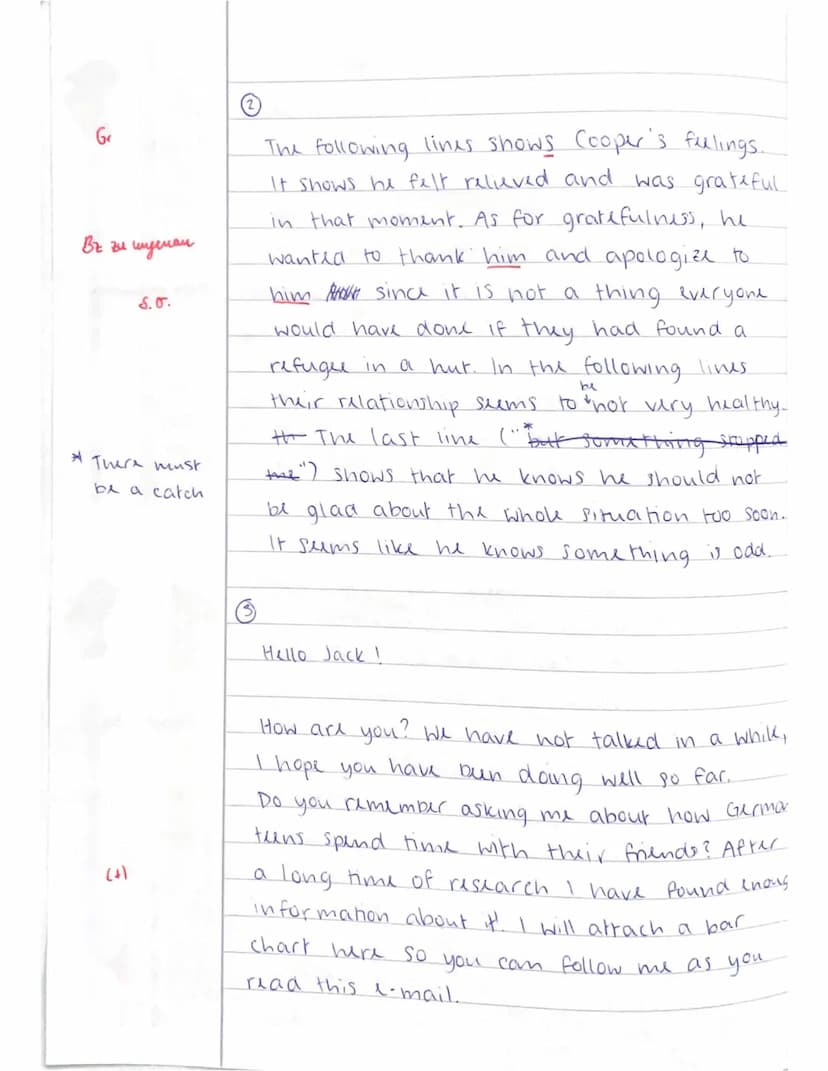 ②
Gr
The following lines shows Cooper's feelings.
It shows he felt relieved and was grateful
in that moment. As for gratefulness, he
Bz zu ungenau
wanted to thank him and apologize to
s.o.
him since it is not a thing everyone
would have done if they had found a
refugee in a hut. In the following lines
their relationship seems to be not very healthy.
The last line ("* but something stopped
me") shows that he knows he should not
* There must
be a catch
be glad about the whole situation too soon.
It seems like he knows something is odd.
③
Hello Jack!
How are you? We have not talked in a while,
I hope you have been doing well so far.
Do you remember asking me about how Germa
teens spend time with their friends? After
(+)
a long time of research I have found enoug
information about it. I will attach a bar
chart here so you can follow me as you
read this e-mail.